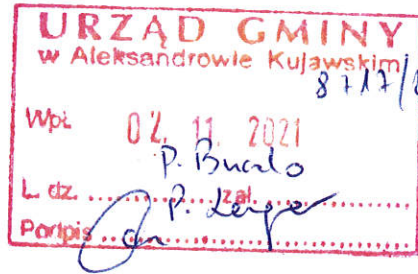 URZĄD GMINY
w Aleksandrowie Kujawskim
8717/
Wpł. 02. 11. 2021
P. Bucało
L. dz. .......... zał. ..........
P.
Podpis ..........